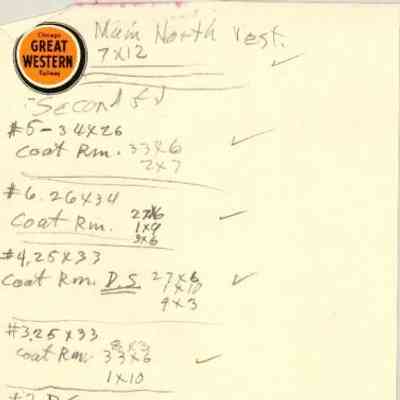 Chicago
GREAT
WESTERN
Railway
Main North Vest.
7x12
Second Fl
#5-34x26
Coat Rm. 33x6
2x7
#6.26x34
Coat Rm. 27x6
1x9
3x6
#4,25x33
Coat Rm. D.S. 27x6
1x10
9x3
#3,25x33
8x3
Coat Rm. 33x6
1x10